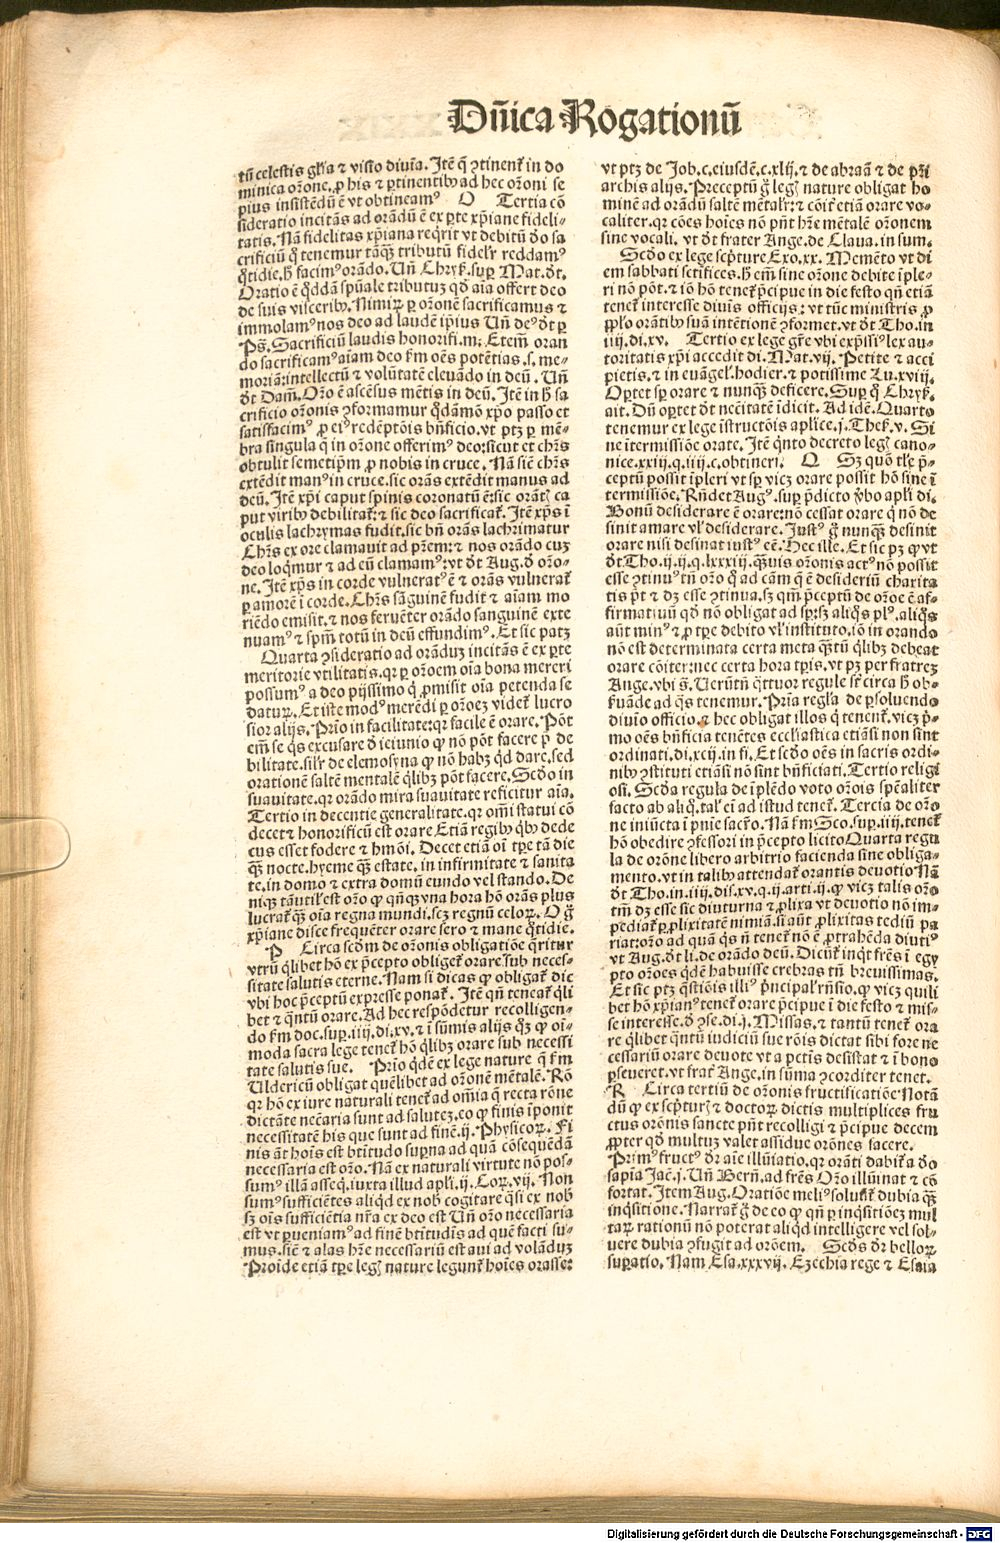 Dn̄ica Rogationū
tū celestis gl̄ia ⁊ visio diuīa. Itē q̄ ꝯtinent̄ in do
minica or̄one. ꝓ his ⁊ ꝑtinentibꝰ ad hec or̄oni se
pius insistēdū ē vt obtineamꝰ O Tertia cō
sideratio incitās ad orādū ē ex ꝑte xp̄iane fideli-
tatis. Nā fidelitas xp̄iana reqͥrit vt debitū do sa
crificiū q̄ tenemur tāqꝫ tributū fidelr̄ reddamꝰ
qͦtidie. h̄ facimꝰ orādo. Un̄ Chryẜ. suꝑ Mat. dt̄.
Oratio ē qͦddā spūale tributuꝫ qd̄ aīa offert deo
de suis visceribꝰ. Nimiꝝ ꝑ or̄onē sacrificamus ⁊
immolamꝰ nos deo ad laudē ip̄ius Un̄ deꝰ dt̄ ꝑ
Ps̄. Sacrificiū laudis honorifi. m̄; Etem̄ oran
do sacrificamꝰ aīam deo ẜm oēs potētias. s. me-
moriā: intellectū ⁊ volūtatē eleuādo in deū. Un̄
dt̄ Dam̄. Or̄o ē ascēsus mētis in deū. Itē in h̄ sa
crificio or̄onis ꝯformamur qͦdāmō xp̄o passo et
satisfacimꝰ ꝓ eiꝰ redēptōis bn̄ficio. vt ptꝫ ꝑ mē-
bra singula q̄ in or̄one offerimꝰ deo: sicut et chr̄s
obtulit semetip̄m ꝓ nobis in cruce. Nā siē chr̄s
extēdit manꝰ in cruce. sic orās extēdit manus ad
deū. Itē xp̄i caput spinis coronatū ē: sic orāt̄ ca
put viribꝰ debilitat̄: ⁊ sic deo sacrificat̄. Itē xp̄s ī
oculis lachrymas fudit. sic bn̄ orās lachrimatur
Chr̄s ex ore clamauit ad pr̄em: ⁊ nos orādo cuꝫ
deo loqͥmur ⁊ ad eū clamamꝰ: vt dt̄ Aug. d̄ or̄o-
ne. Itē xp̄s in corde vulneratꝰ ē ⁊ orās vulnerat̄
ꝑ amorē ī corde. Chr̄s sāguinē fudit ⁊ aīam mo
riēdo emisit. ⁊ nos feruēter orādo sanguinē exte
nuamꝰ ⁊ spm̄ totū in deū effundimꝰ. Et sic patꝫ
Quarta ꝯsideratio ad orāduꝫ incitās ē ex ꝑte
meritorie vtilitatis. qr ꝑ or̄oem oīa bona mereri
possumꝰ a deo pijssimo qͥ ꝓmisit oīa petenda se
daturꝝ. Et iste modꝰ merēdi ꝑ or̄oeꝫ videt̄ lucro
sior alijs. Prīo in facilitate: qr facile ē orare. Pōt
em̄ se qͥs excusare d̄ ieiunio ꝙ nō pōt facere ꝓ de
bilitate. silr̄ de elemosyna ꝙ nō habꝫ qͥd dare. sed
orationē saltē mentalē qͥlibꝫ pōt facere. Scd̄o in
suauitate. qr orādo mira suauitate reficitur aīa.
Tertio in decentie generalitate. qr om̄i statui cō
decet ⁊ honorificū est orare Etiā regibꝰ qͥbꝰ dede
cus esset fodere ⁊ hm̄oi. Decet etiā oī tꝑe tā die
qꝫ nocte. hyeme qꝫ estate. in infirmitate ⁊ sanita
te. in domo ⁊ extra domū eundo vel stando. De
niqꝫ tāutil̄ est or̄o ꝙ qn̄qꝫ vna hora hō orās plus
lucrat̄ qꝫ oīa regna mundi. scꝫ regnū celoꝝ. O g̊
xp̄iane disce frequēter orare sero ⁊ mane qͦtidie.
P Circa scd̄m de or̄onis obligatiōe qͥritur
vtrū qͥlibet hō ex p̄cepto obliget̄ orare. sub neces-
sitate salutis eterne. Nam si dicas ꝙ obligat̄ dic
vbi hoc p̄ceptū expresse ponat̄. Itē qn̄ teneat̄ qͥli
bet ⁊ qͣntū orare. Ad hec respōdetur recolligen-
do ẜm doc. suꝑ. iiij. di. xv. ⁊ ī sūmis alijs qͣꝫ ꝙ oī-
moda sacra lege tenet̄ hō qͥlibꝫ orare sub necessi
tate salutis sue. Prīo qͥdē ex lege nature q̄ ẜm
Uldericū obligat quēlibet ad or̄onē mētalē. Rō
qr hō ex iure naturali tenet̄ ad om̄ia q̄ recta rōne
dictāte necīaria sunt ad saluteꝫ. eo ꝙ finis īponit
necessitatē his que sunt ad finē. ij. Physicoꝝ. Fi
nis āt hoīs est btītudo supna ad quā cōsequēdā
necessaria est or̄o. Nā ex naturali virtute nō pos-
sumꝰ illā asseq̄. iuxta illud apl̄i. ij. Coꝝ. vij. Non
sumꝰ sufficiētes aliqͥd ex nob̄ cogitare qͣsi ex nob̄
sꝫ oīs sufficiētia nr̄a ex deo est Un̄ or̄o necessaria
est vt ꝑueniamꝰ ad finē btītudīs ad quē facti su-
mus. siē ⁊ alas hr̄e necessariū est aui ad volāduꝫ
Proīde etiā tꝑe legꝭ nature legunt̄ hoīes orasse:
vt ptꝫ de Job. c. eiusdē. c. xlij. ⁊ de abraā ⁊ de pr̄i
archis alijs. Preceptū g̊ legꝭ nature obligat ho
minē ad orādū saltē mētalr̄: ⁊ cōit̄ etiā orare vo-
caliter. qr cōes hoīes nō pn̄t hr̄e mētalē or̄onem
sine vocali. vt dt̄ frater Ange. de Claua. in sum.
Scd̄o ex lege scp̄ture Exo. xx. Memēto vt di
em sabbati sctifices. h̄ em̄ sine or̄one debite īple-
ri nō pōt. ⁊ iō hō tenet̄ p̄cipue in die festo qn̄ etiā
tenet̄ interesse diuīs officijs: vt tūc ministris ꝓ
pp̄lo orātibꝰ suā intētionē ꝯformet. vt dt̄ Tho. in
iiij. di. xv. Tertio ex lege grē vbi exp̄ssiꝰ lex au-
toritatis xp̄i accedit di. Mat. vij. Petite ⁊ acci
pietis. ⁊ in euāgel̄. hodier. ⁊ potissime Lu. xviij.
Oꝑtet sꝑ orare ⁊ nunqꝫ deficere. Suꝑ qͦ Chryẜ.
ait. Dū oꝑtet dt̄ necītatē īdicit. Ad idē. Quarto
tenemur ex lege īstructōis apl̄ice. j. Theẜ. v. Si
ne ītermissiōe orate. Itē qͥnto decreto legꝭ cano-
nice. xxij. q. iiij. c. obtineri. Q Sꝫ quō tl̄e p̄-
ceptū possit īpleri vt sꝑ vicꝫ orare possit hō sine ī
termissiōe. Rn̄det Augꝰ. suꝑ p̄dicto v̄bo apl̄i di.
Bonū desiderare ē orare: nō cessat orare qͥ nō de
sinit amare vl̄ desiderare. Justꝰ g̊ nunqꝫ desinit
orare nisi desinat iustꝰ eē. Hec ille. Et sic pꝫ ꝙ vt
dt̄. Tho. ij. ij. q. lxxxiij. qͣuis or̄onis actꝰ nō possit
esse ꝯtinuꝰ tn̄ or̄o qͦ ad cām q̄ ē desideriū charita
tis pt̄ ⁊ dꝫ esse ꝯtinua. sꝫ qm̄ p̄ceptū de or̄oe ē af-
firmatiuū qd̄ nō obligat ad sꝑ: sꝫ aliqn̄ plꝰ. aliqn̄
aūt minꝰ ⁊ ꝓ tꝑe debito vl̄ instituto. iō in orando
nō est determinata certa meta qͣtū qͥlibꝫ debeat
orare cōiter: nec certa hora tꝑis. vt pꝫ per fratreꝫ
Ange. vbi s̄. Uerūtn̄ qͣttuor regule sūt circa h̄ ob-
ẜuāde ad qͣs tenemur. Prīa regl̄a de ꝑsoluendo
diuīo officio. ⁊ hec obligat illos qͥ tenent̄. vicꝫ p̄-
mo oēs bn̄ficia tenētes eccl̄iastica etiāsi non sint
ordinati. di. xcij. in fi. Et scd̄o oēs in sacris ordi-
nibꝰ ꝯstituti etiāsi nō sint bn̄ficiati. Tertio religi
osi. Scd̄a regula de īplēdo voto or̄ois sp̄ealiter
facto ab aliqͦ. tal̄ eī ad istud tenet̄. Tercia de or̄o
ne iniūcta ī pn̄ie sacr̄o. Nā ẜm Sco. suꝑ. iiij. tenet̄
hō obedire ꝯfessori in p̄cepto licito Quarta regu
la de or̄one libero arbitrio facienda sine obliga-
mento. vt in talibꝰ attendat̄ orantis deuotio Nā
dt̄ Tho. in. iiij. dis. xv. q. ij. arti. ij. ꝙ vicꝫ talis or̄o
tm̄ dꝫ esse sic diuturna ⁊ ꝓlixa vt deuotio nō im-
pediat̄ ꝑ ꝓlixitatē nimiā. si aūt ꝓlixitas tediū pa
riat: or̄o ad quā qͥs n̄ tenet̄ nō ē ꝓtrahēda diutiꝰ
vt Aug. dt̄ li. de orādo deū. Dicūt̄ inqͥt frēs ī egy
pto or̄oes qͥdē habuisse crebras tn̄ breuissimas.
Et sic ptꝫ qͥstiōis illiꝰ p̄ncipal̄ rn̄sio. ꝙ vicꝫ quili
bet hō xp̄ianꝰ tenet̄ orare p̄cipue ī die festo ⁊ mis-
se interesse. d̄ ꝯse. di. j. Missas. ⁊ tantū tenet̄ ora
re qͥlibet qͣntū iudiciū sue rōis dictat sibi fore ne
cessariū orare deuote vt a pctīs desistat ⁊ ī bono
ꝑseueret. vt frat̄ Ange. in sūma ꝯcorditer tenet.
R Circa tertiū de or̄onis fructificatiōe Notā
dū ꝙ ex scp̄turꝭ ⁊ doctoꝝ dictis multiplices fru
ctus or̄onis sancte pn̄t recolligi ⁊ p̄cipue decem
ꝓpter qd̄ multuꝫ valet assidue or̄ones facere.
Primꝰ fructꝰ dr̄ aīe illūiatio. qr orāti dabit̄ a do
sapīa Jac. j. Un̄ Bern̄. ad frēs Or̄o illūinat ⁊ cō
fortat. Item Aug. Oratiōe meliꝰ soluūt̄ dubia qͣꝫ
inqͥsitione. Narrat̄ g̊ de eo ꝙ qn̄ ꝑ inqͥsitiōeꝫ mul
taꝝ rationū nō poterat aliqͥd intelligere vel sol-
uere dubia ꝯfugit ad or̄oēm. Scd̄s dr̄ belloꝝ
suꝑatio. Nam Esa. xxxvij. Ezechia rege ⁊ Esaia
Digitalisierung gefördert durch die Deutsche Forschungsgemeinschaft - DFG